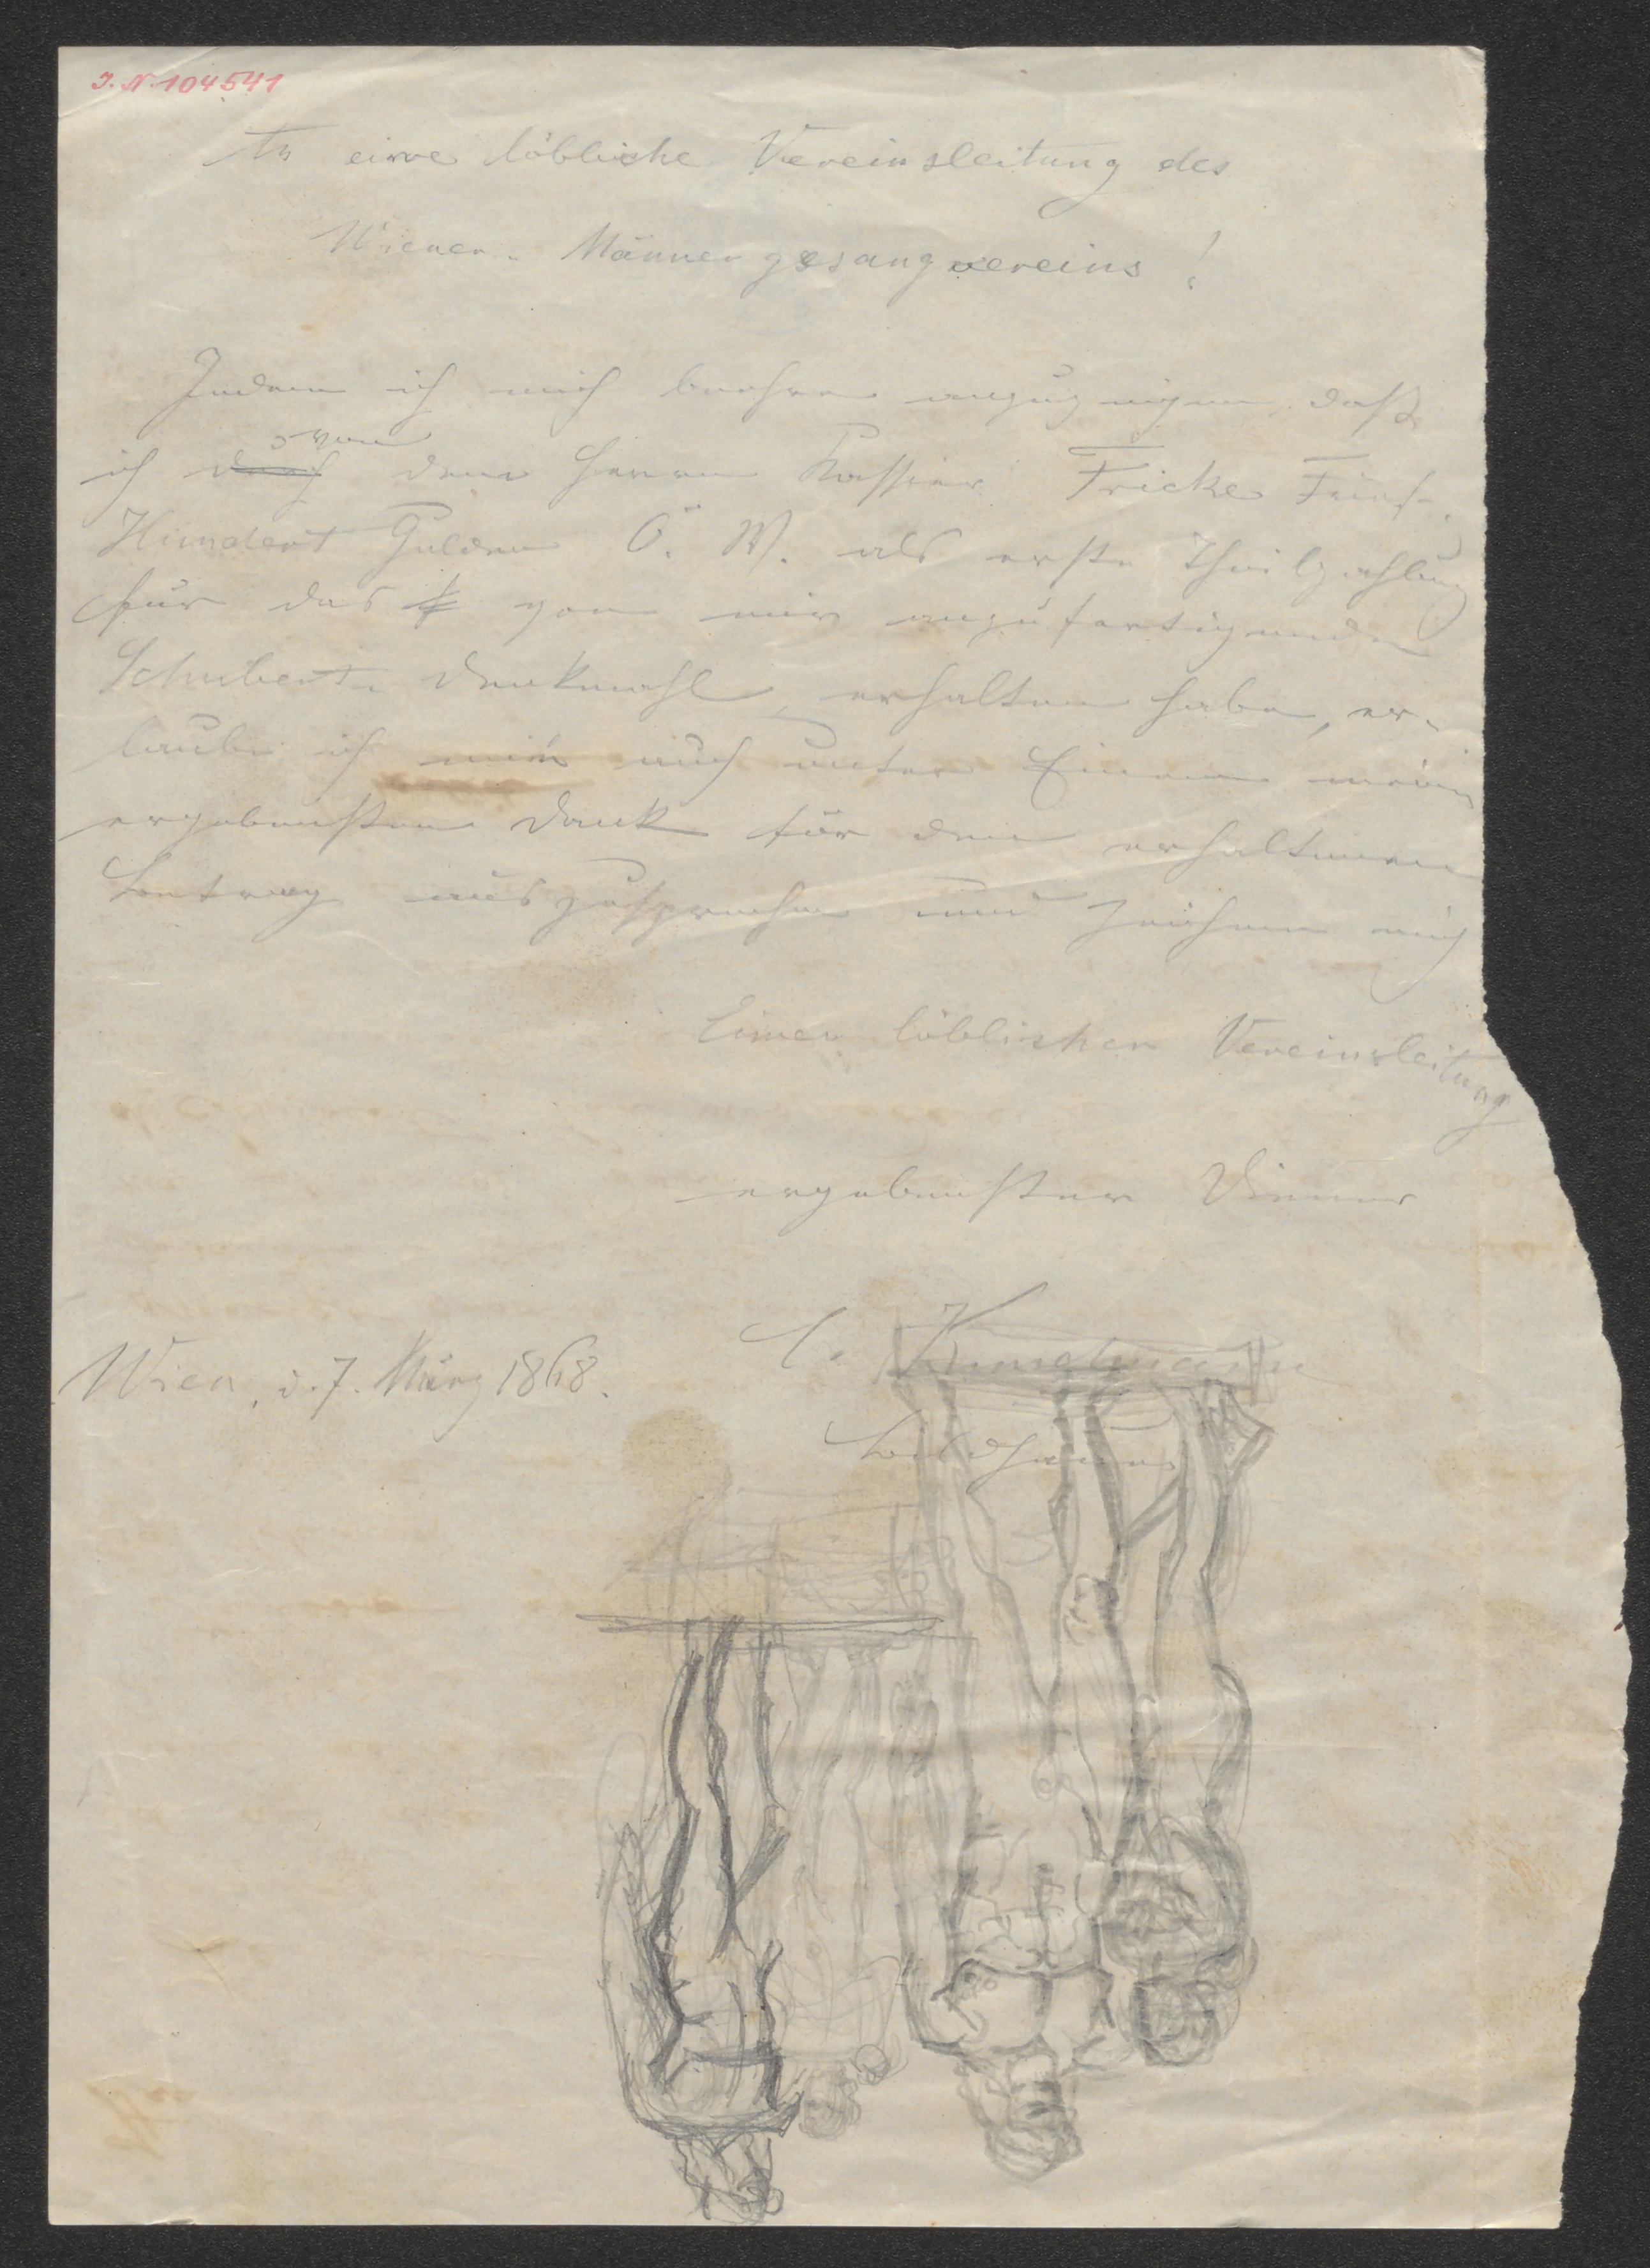 J. N. 104541
An eine löbliche Vereinsleitung des
Wiener-Männergesangvereins!
Indem ich mich beehre anzuzeigen, daß
ich durch von dem Herrn Kassier Fricke Fünf-
Hundert Gulden Ö. W. als erste Theilzahlung
für das von mir anzufertigende
Schubert-Denkmahl, erhalten habe, er-
laube ich mir auch unter Einem meinen
ergebensten Dank für den erhaltenen
Betrag auszusprechen und zeichne mich
Einer löblichen Vereinsleitung
ergebenster Diener
C. Kundmann
Wien, d. 7. März 1868.
Bildhauer